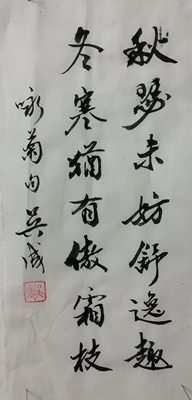 秋瑟未妨舒逸趣
冬寒犹有傲霜枝
咏菊句吴成